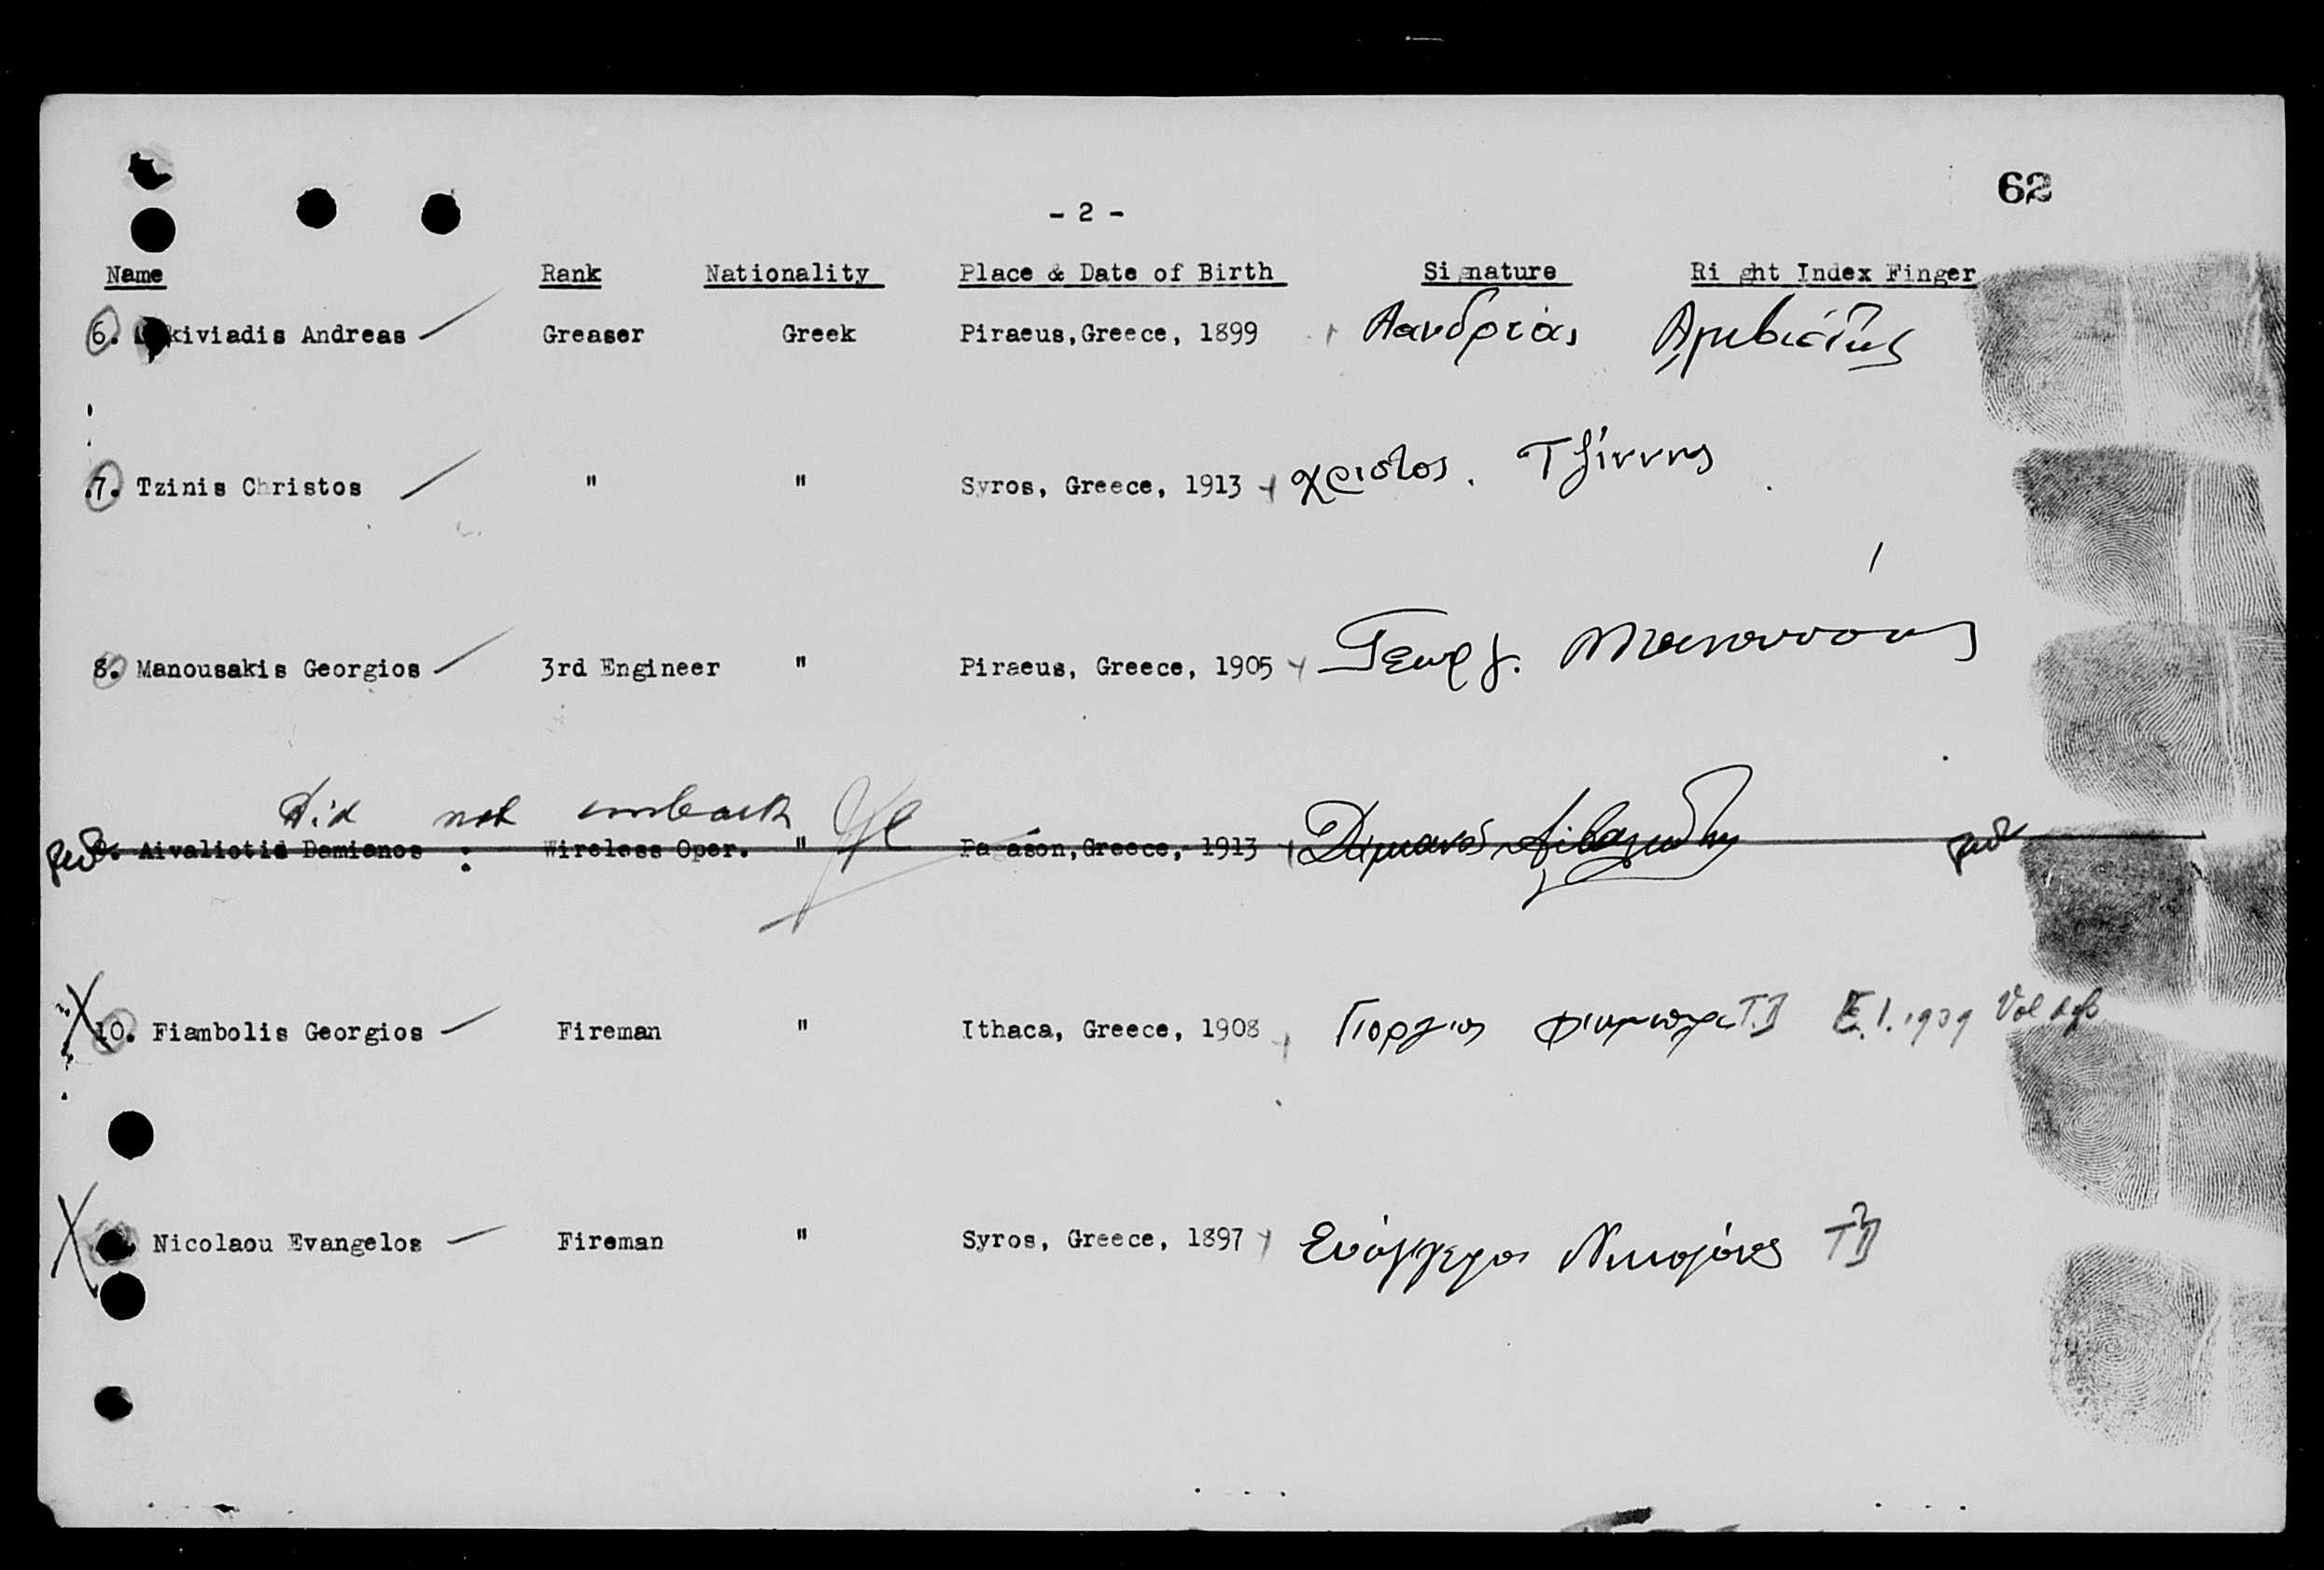 62
- 2 -
Name Rank Nationality Place & Date of Birth Si nature Ri ght Index Finger
6. kiviadis Andreas Greaser Greek Piraeus, Greece, 1899
7. Tzinis Christos " " Syros, Greece, 1913 χριστος. Τζίννης
8. Manousakis Georgios 3rd Engineer " Piraeus, Greece, 1905 Γεωργ.
Did not embark
Aivaliotis Damianos : Wireless Oper. " Pa ason, Greece, 1913
10. Fiambolis Georgios Fireman " Ithaca, Greece, 1908 Γιοργιος T.B E.1.1939 Vol
Nicolaou Evangelos Fireman " Syros, Greece, 1897 Ευάγγελος Νικολάου TB